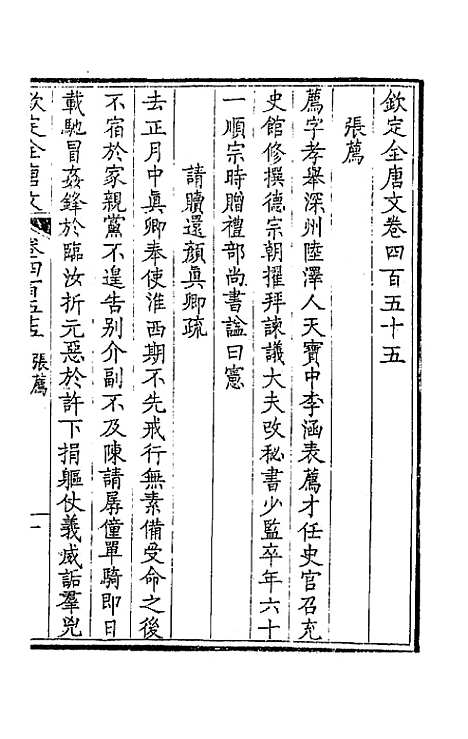 欽定全唐文卷四百五十五
張薦
薦字孝舉深州陸澤人天寶中李涵表薦才任史官召充
史館修撰德宗朝擢拜諫議大夫改秘書少監卒年六十
一順宗時贈禮部尚書謚曰憲
請贖還顏眞卿疏
去正月中眞卿奉使淮西期不先戒行無素備受命之後
不宿於家親黨不遑告别介副不及陳請孱僮單騎即日
載馳冒姦鋒於臨汝折元惡於許下捐軀仗義威詬羣兇
欽定全唐文 卷四百五十五 張薦 一